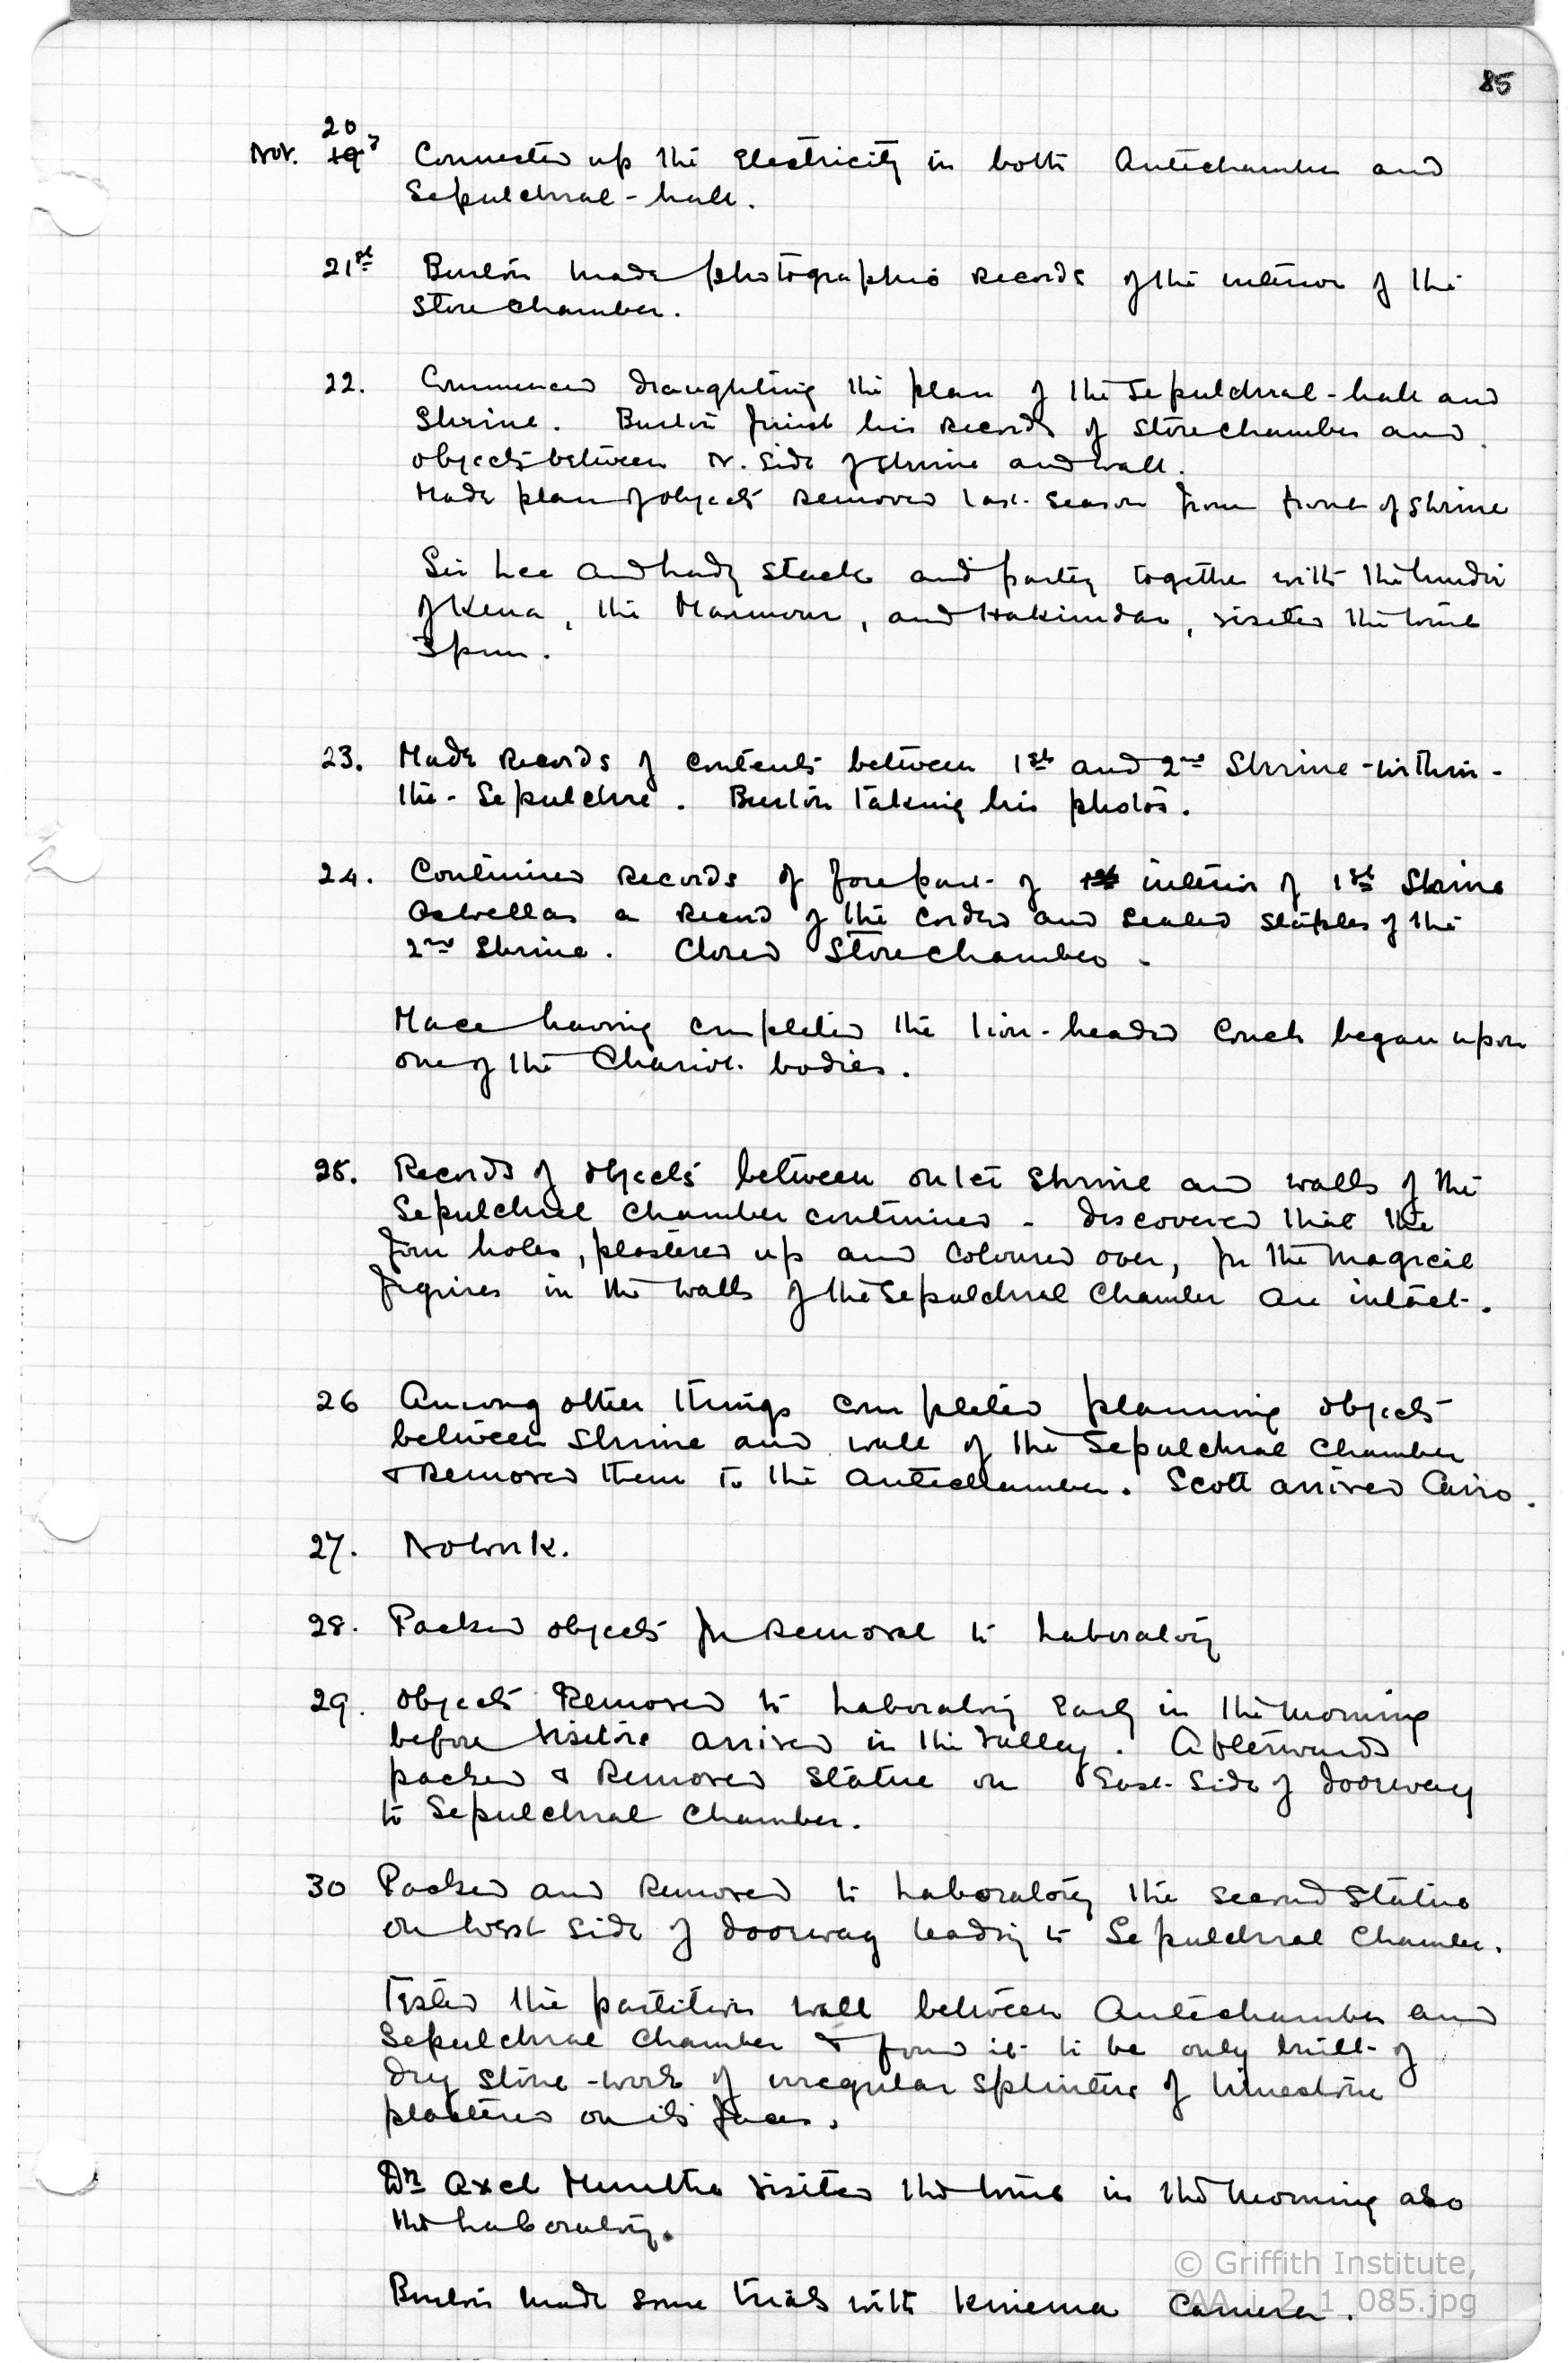 85
20
Nov. 19? Connected up the Electricity in both Antechamber and
Sepulchral-hall.
21st Burton made photographic records of the interior of the
Store chamber.
22. Commenced draughting the plan of the Sepulchral-hall and
Shrine. Burton finisht his records of Storechamber and
objects between N. side of shrine and wall.
Made plan of objects removed last season from front of shrine
Sir Lee and Lady Stack and party together with the Mudir
of Kena, the Mamour, and Hakimdar, visited the tomb
3 pm.
23. Made Records of contents between 1st and 2nd Shrine-within-
the-Sepulchre. Burton taking his photos.
24. Continued records of fore part of 1st interior of 1st Shrine
as well as a record of the corded and sealed staples of the
2nd Shrine. Closed Storechamber.
Mace having completed the lion-headed couch began upon
one of the Chariot bodies.
25. Records of objects between outer shrine and walls of the
Sepulchral Chamber continued. Discovered that the
four holes, plastered up and coloured over, for the magical
figures in the walls of the Sepulchral Chamber are intact.
26 Among other things completed planning objects
between shrine and wall of the Sepulchral Chamber
& Removed them to the Antechamber. Scott arrived Cairo.
27. No work.
28. Packed objects for removal to Laboratory
29. Objects Removed to Laboratory early in the morning
before visitors arrived in the Valley. Afterwards
packed & Removed statue on East side of doorway
to Sepulchral Chamber.
30 Packed and Removed to Laboratory the second statue
on West side of doorway leading to Sepulchral Chamber.
Tested the partition wall between Antechamber and
Sepulchral Chamber & found it to be only built of
dry stone-work of irregular splinters of limestone
plastered on its faces.
Dr Axel Munthe visited the tomb in the morning also
the Laboratory.
Burton made some trials with kinema Camera.
© Griffith Institute,
TAA_i_2_1_085.jpg